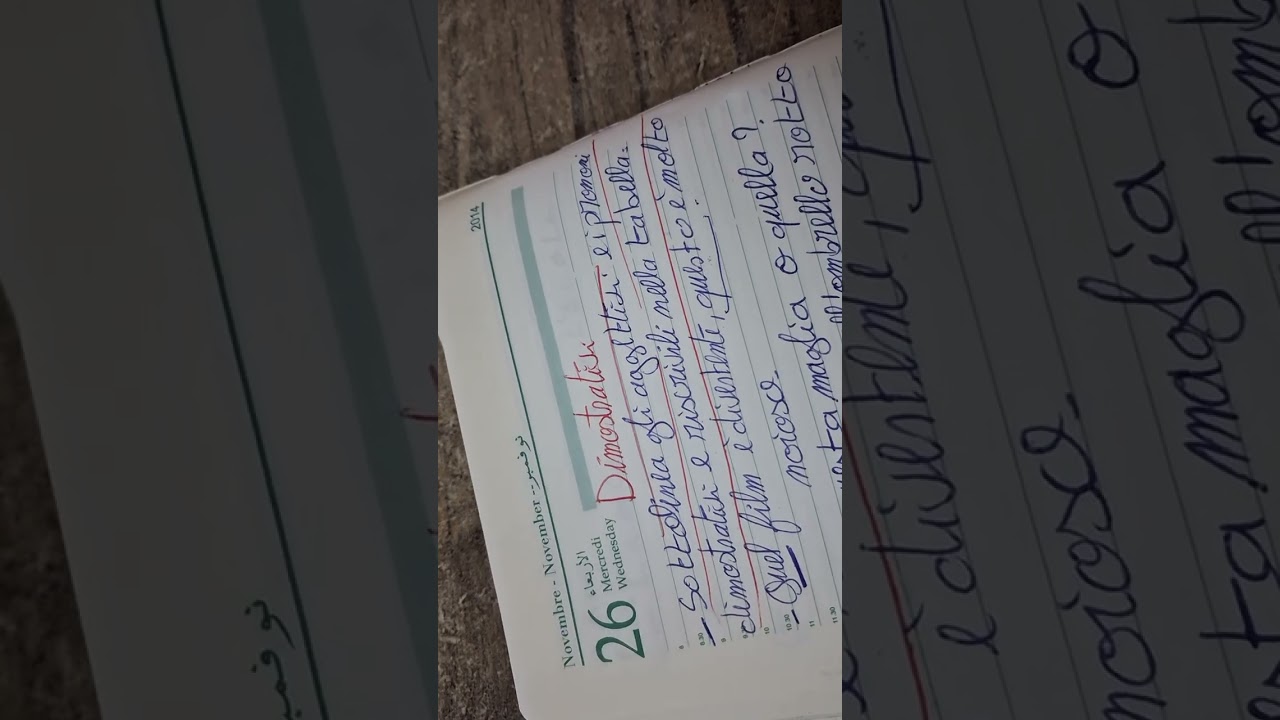 2014
Novembre - November - نوفمبر
26
الاربعاء
Mercredi
Wednesday
Dimostrativi
- Sottolinea gli aggettivi e i pronomi
dimostrativi e riscrivili nella tabella.
- Quel film è divertente, questo è molto
noioso.
maglia o quella?
rotto
8
8.30
9
10
10.30
11
11.30